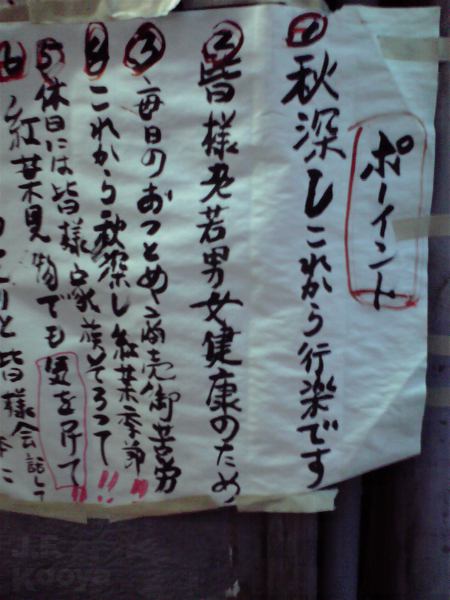 ポーイント
①秋深しこれから行楽です
②皆様老若男女健康のため
③毎日のおつとめ商売御苦労
④これから秋深し紅葉季節!!
⑤休日には皆様家族そろって!!
⑥紅葉見物でも気を付けて!!
と皆様会話して
J.F.
Kooya